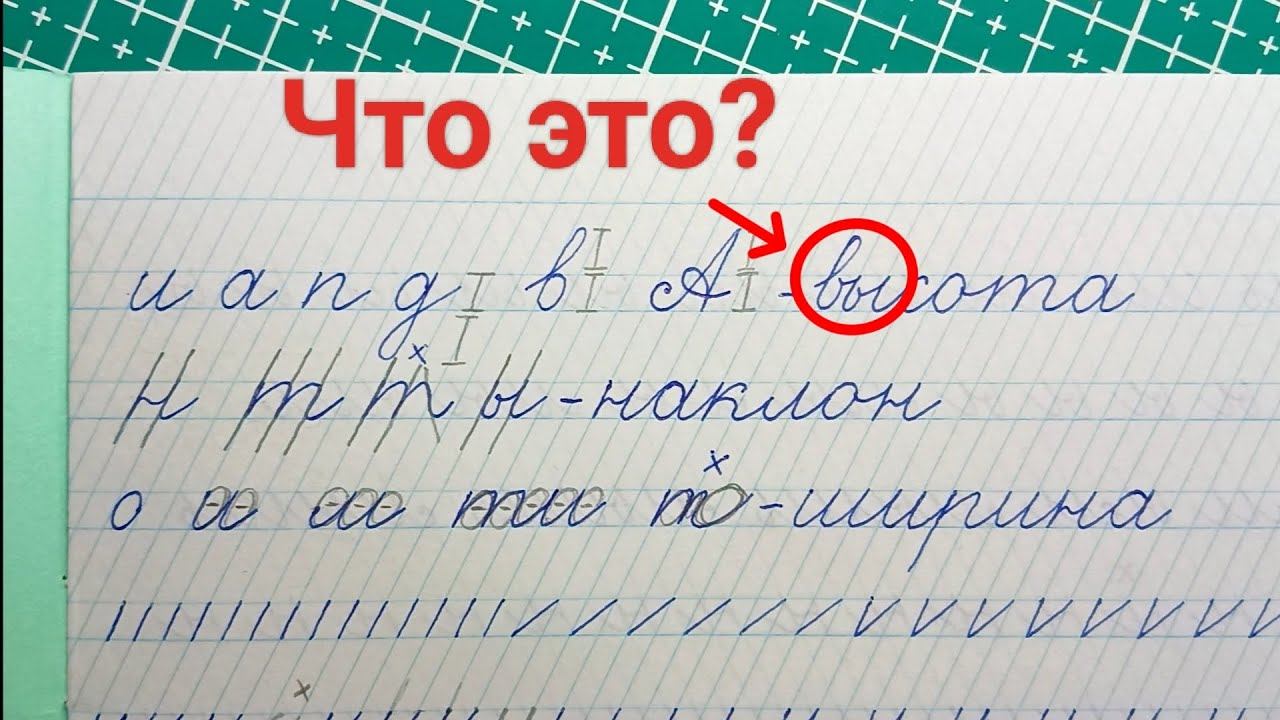 Что это?
и а п д в А - высота
н т т ы - наклон
о и ш тии то - ширина